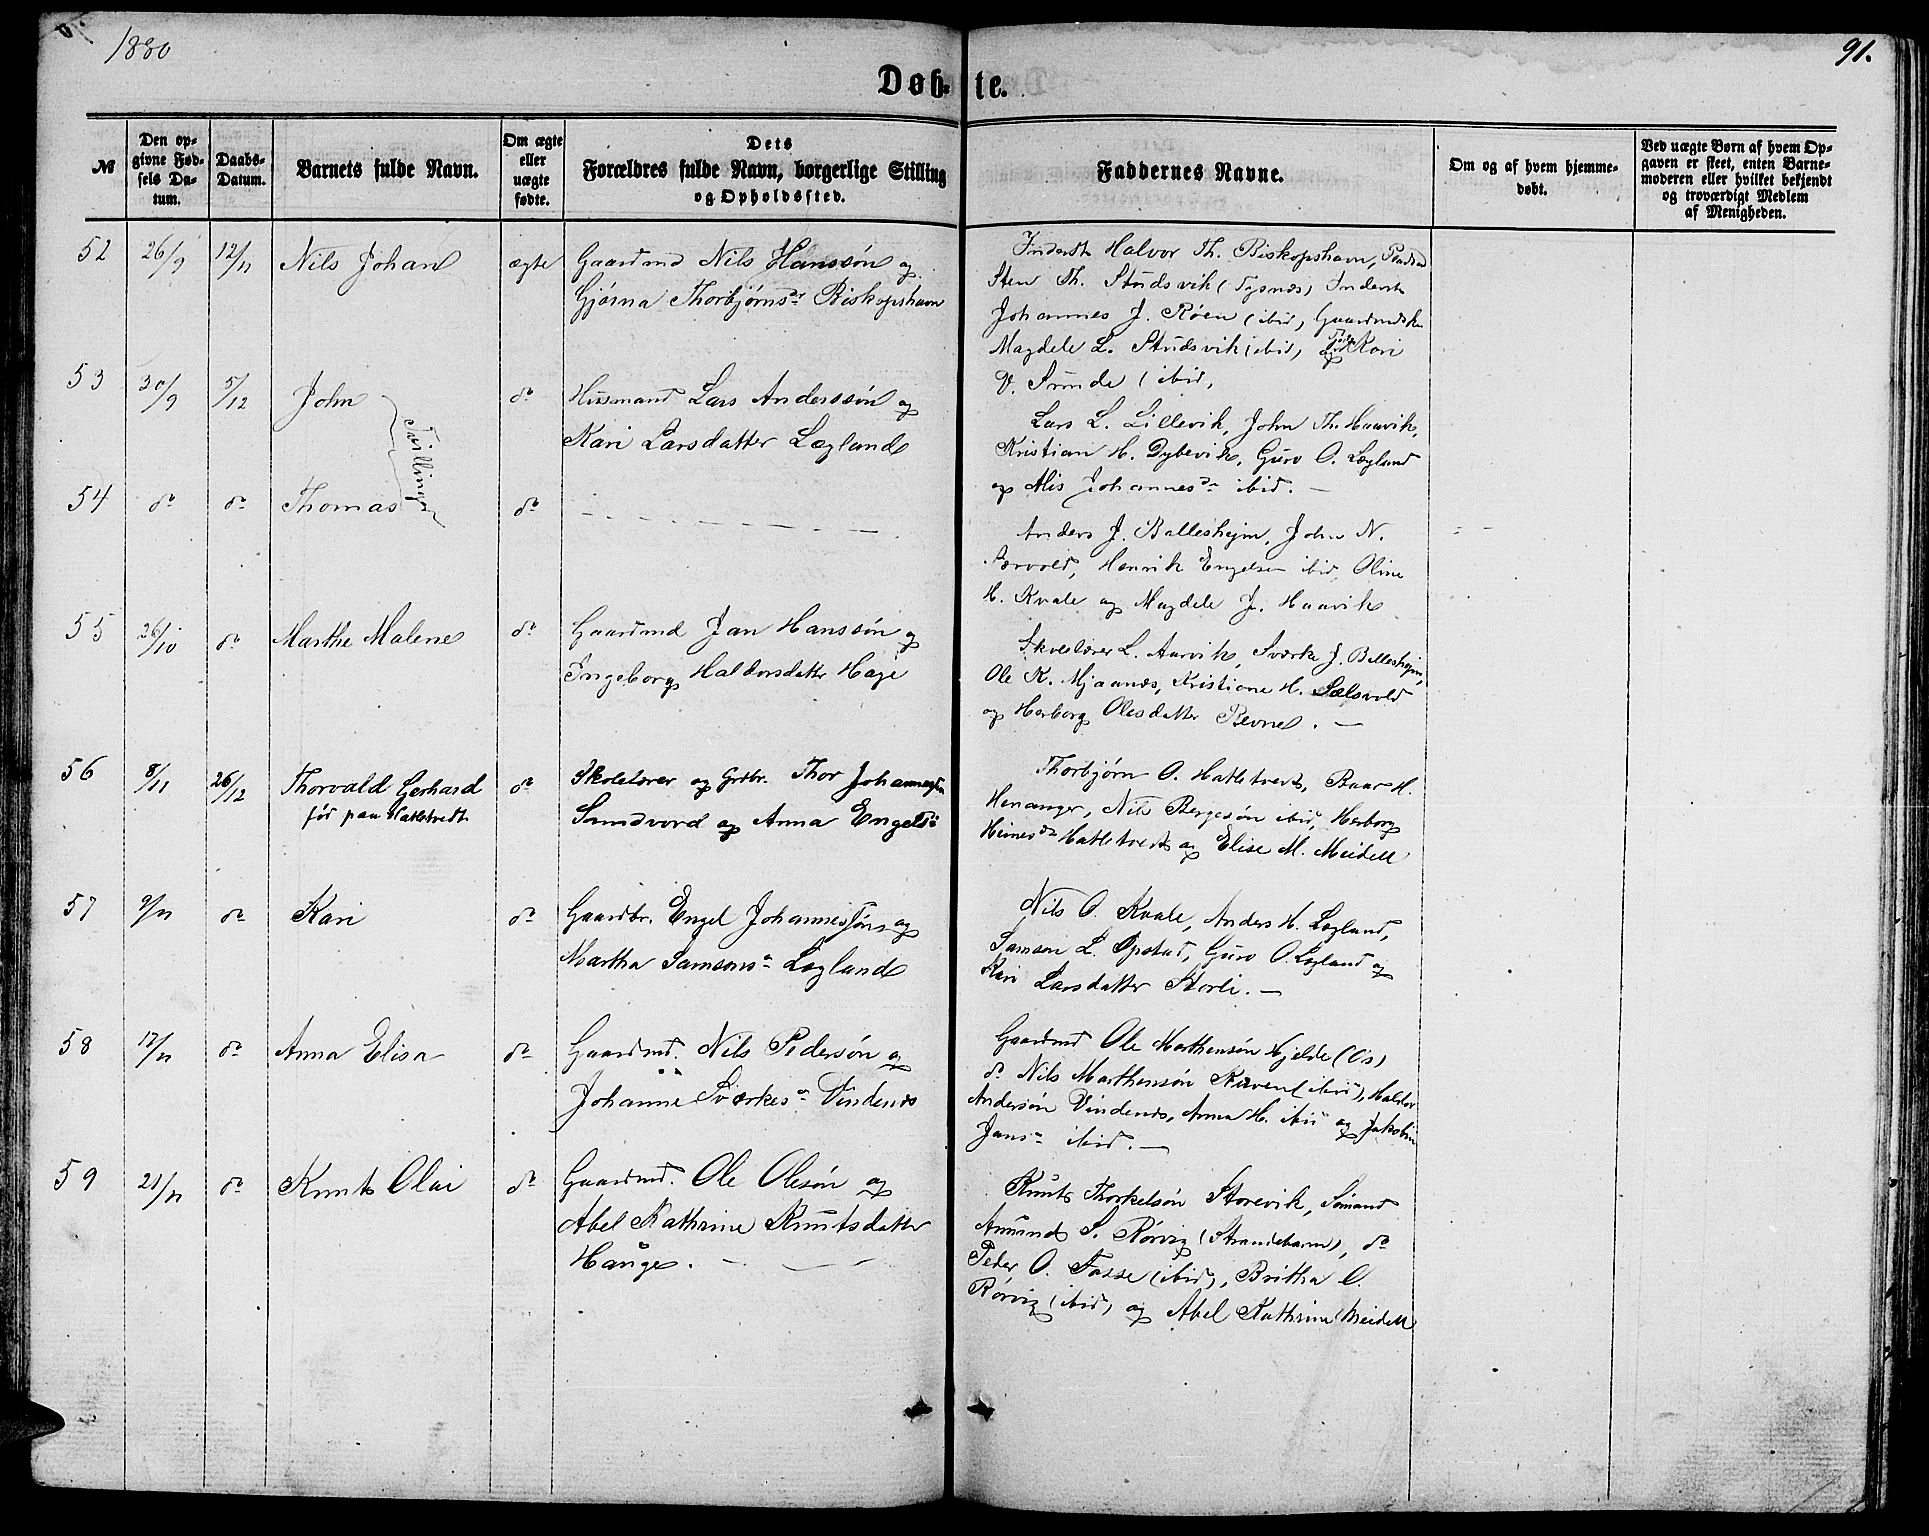 1880
91.
Døb- te.
№
Den op-
givne Fød-
sels Da-
tum.
Daabs-
Datum.
Barnets fulde Navn.
Om ægte
eller
uægte
fødte.
Dets
Forældres fulde Navn, borgerlige Stilling
og Opholdssted.
Faddernes Navne.
Om og af hvem hjemme-
døbt.
Ved uægte Børn af hvem Op-
gaven er skeet, enten Barne-
moderen eller hvilket bekjendt
og troværdigt Medlem
af Menigheden.
52 26/9 12/11 Nils Johan ægte
Gaardmd Nils Hanssøn og
Gjørna Thorbjørnsdr Biskopshavn
Inderst Halvor Th. Biskopshavn,
Sten Th. Studsvik (Tysnæs) Inderst
Johannes J. Røen (ibid, Gaardmdsk.
Magdele L. Studsvik (ibid, og Kari
V. Sunde (ibid,
53 30/9 5/12 John do
Tvillinger
Husmand Lars Anderssøn og
Kari Larsdatter Lægland
Lars L. Lillevik, John Th. Haavik,
Kristian H. Dybevik, Guro O. Lægland
og Alis Johannesdr ibid. —
54 do do Thomas do — — — — — — —
Anders J. Balleshejm, John N.
Særvold, Henrik Engelsen ibid, Oline
H. Kvale og Magdele J. Haavik
55 26/10 do Marthe Malene do
Gaardmd Jan Hanssøn og
Ingeborg Haldorsdatter Hage
Skolelærer L. Aarvik, Sværke J. Balleshejm,
Ole K. Mjaanæs, Kristiane H. Sælsvold
og Herborg Olesdatter Revne. —
56 8/11 26/12 Thorvald Gerhard do
før paa Hatletvedt
Skolelærer og Grdbr. Thor Johannessen
Sandvord og Anna Engelsd:
Thorbjørn O. Hatletvedt, Baar H.
Henanger, Nils Bergesøn ibid, Herborg
Heinesdr Hatletvedt og Elise M. Meidell
57 9/11 do Kari do
Gaardbr. Engel Johannessøn og
Martha Samsonsdr Lægland
Nils O. Kvale, Anders H. Lægland,
Samson L. Opstad, Guro O. Lægland og
Kari Larsdatter Storli. —
58 17/11 do Anna Elisa do
Gaardmd. Nils Pedersøn og
Johanne Sværkesdr Vindenæs
Gaardmd Ole Mathensøn Hjelde (Os)
do Nils Marthensøn Kuven (ibid), Haldor
Andersøn Vindenes, Anna H. ibid og Jakobin
Jansdr ibid. —
59 21/11 do Knut Olai do
Gaardmd. Ole Olesøn og
Abel Kathrine Knutsdatter
Hauge. — — —
Knut Thorkelsøn Storevik, Sømand
Amund S. Rørvig (Strandebarm), do
Peder O. Fosse (ibid), Britha O.
Rørvig (ibid) og Abel Kathrine Meidell